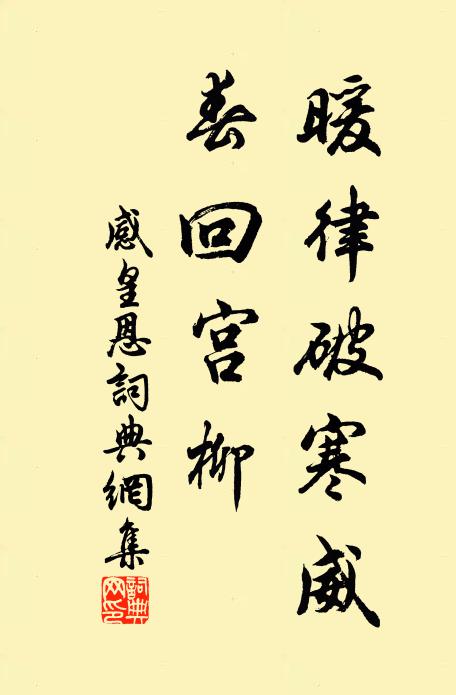 暖律破寒威
春回宫柳
感皇恩詞典網集
詞典網印